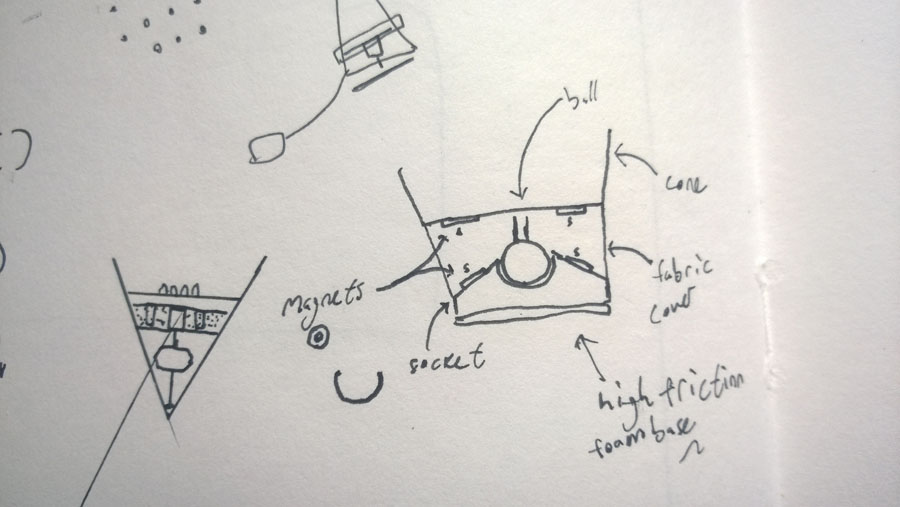 ball
cone
s
s
s
s
magnets
fabric
cover
socket
high friction
foam base